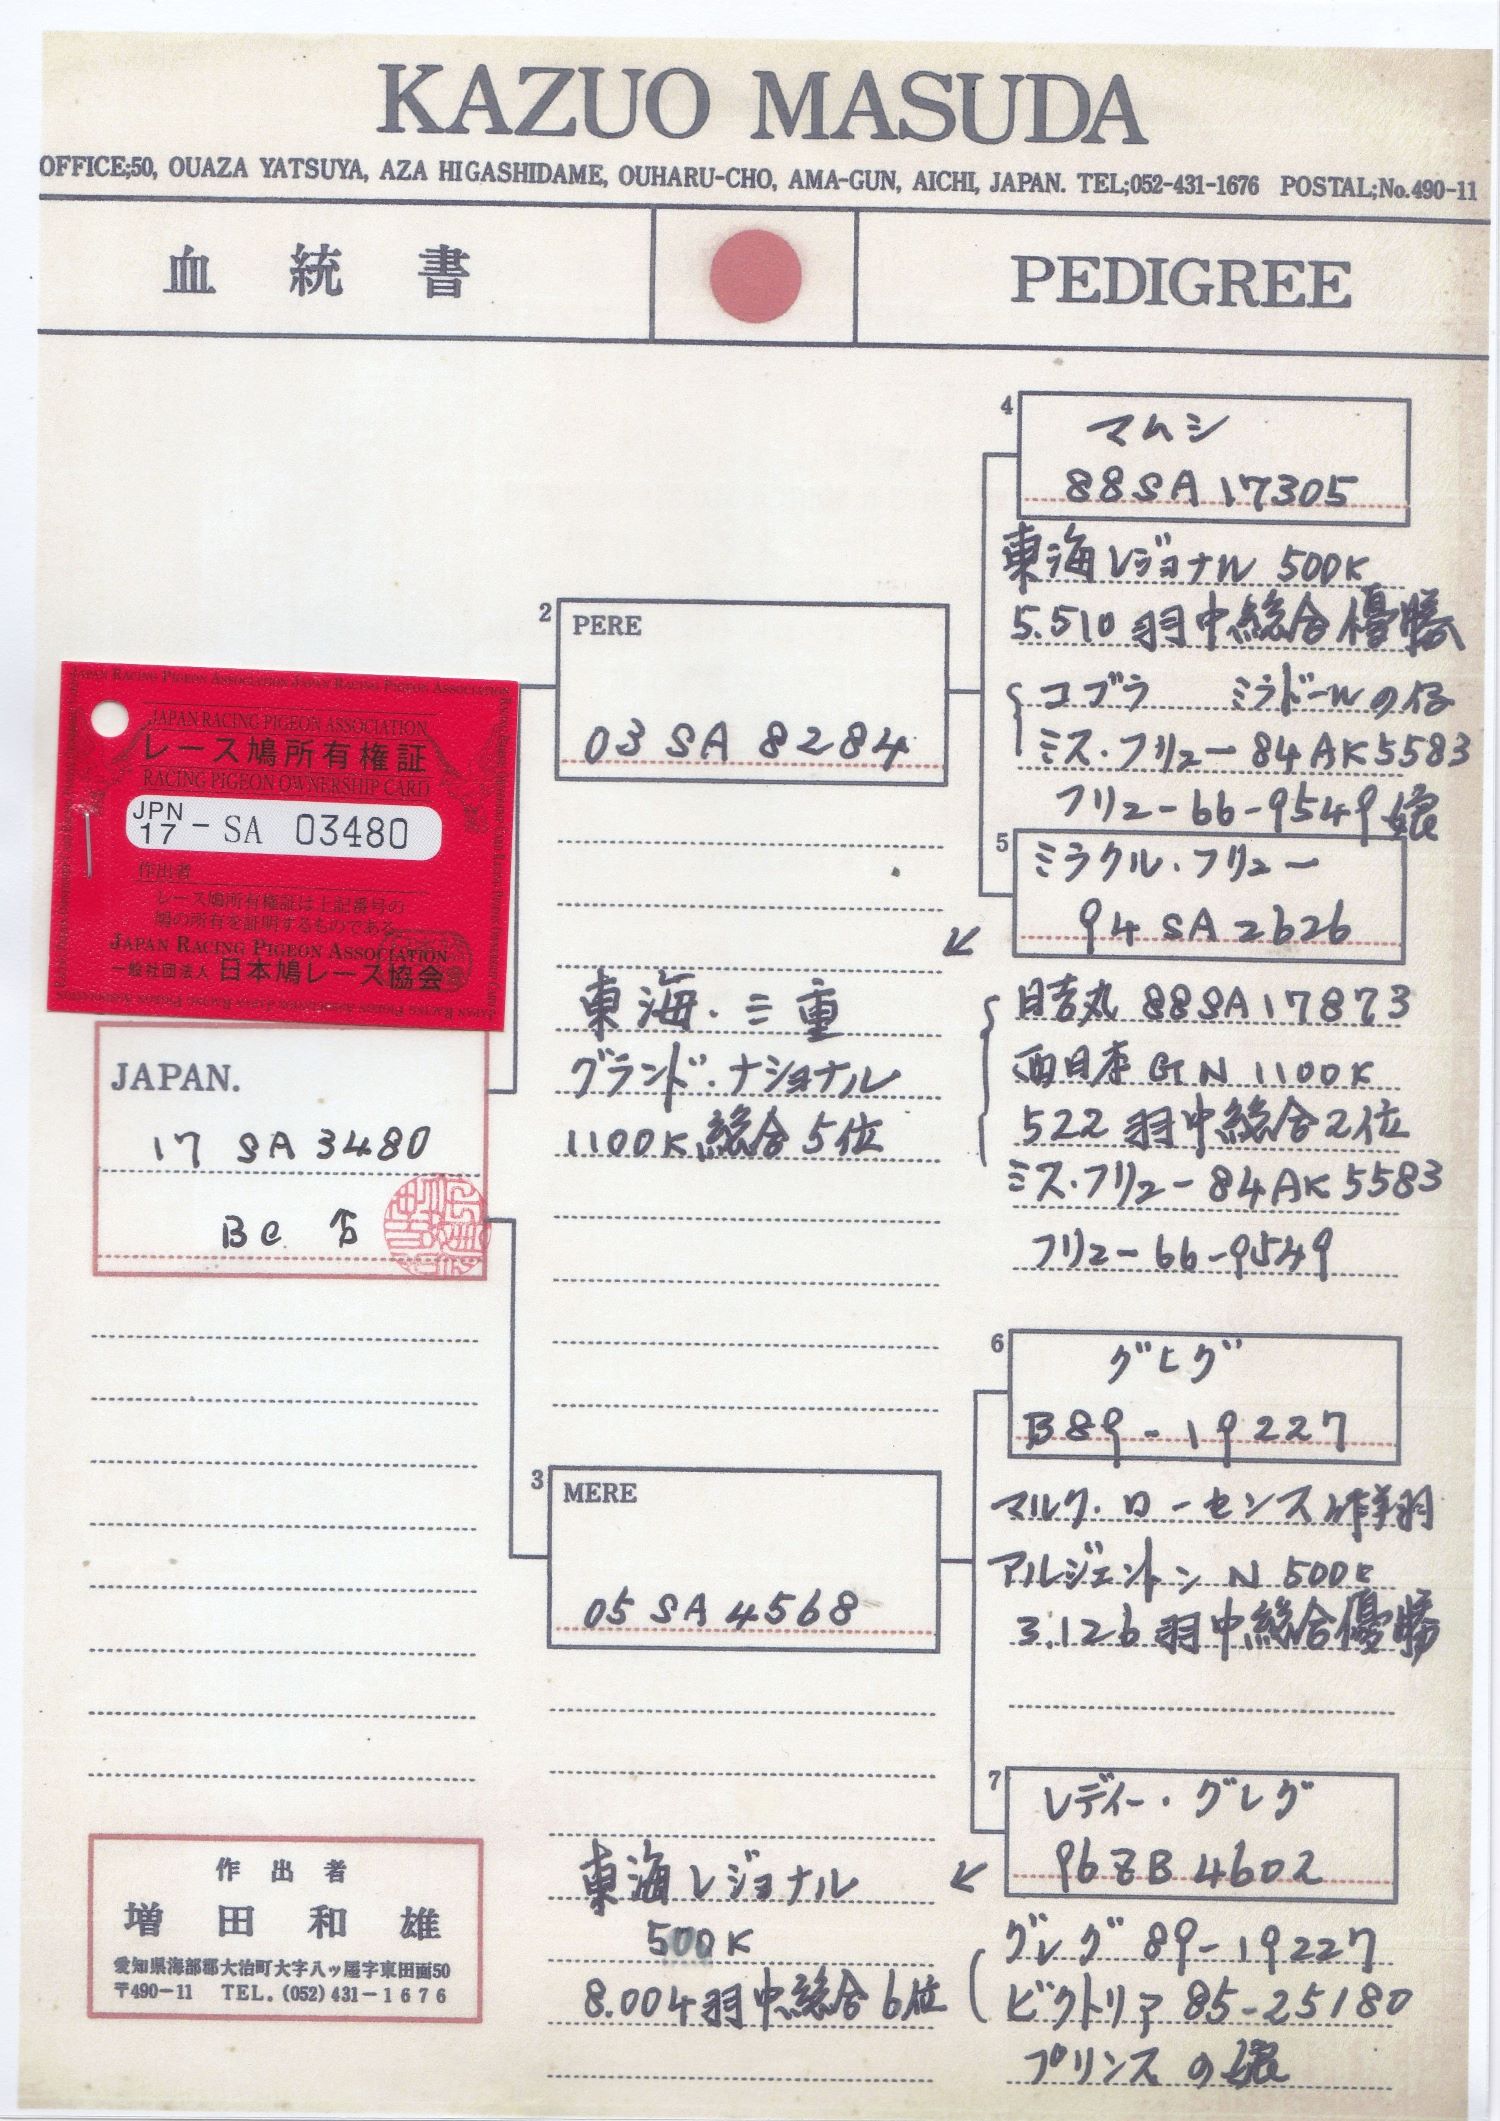 KAZUO MASUDA
OFFICE;50, OUAZA YATSUYA, AZA HIGASHIDAME, OUHARU-CHO, AMA-GUN, AICHI, JAPAN. TEL;052-431-1676 POSTAL;No.490-11
血統書
PEDIGREE
4
マムシ
88SA17305
東海レジョナル 500K
5.510羽中総合優勝
コブラ ミラドールの仔
ミス・フリュー84AK5583
フリュー66-9549娘
2 PERE
03 SA 8284
JAPAN RACING PIGEON ASSOCIATION JAPAN RACING PIGEON ASSOCIATION
JAPAN RACING PIGEON ASSOCIATION
レース鳩所有権証
RACING PIGEON OWNERSHIP CARD
JPN
17 - SA 03480
作出者
レース鳩所有権証は上記番号の
鳩の所有を証明するものである。
JAPAN RACING PIGEON ASSOCIATION
一般社団法人 日本鳩レース協会
5
ミラクル・フリュー
94 SA 2626
↙
東海・三重
グランド・ナショナル
1100K総合5位
日吉丸 88SA17873
西日本GN 1100K
522羽中総合2位
ミス・フリュー84AK5583
フリュー66-9549
JAPAN.
17 SA 3480
BC ♂
6
B89-19227
マルク・ローセンス作翔
アルジェントンN 500K
3.126羽中総合優勝
3 MERE
05 SA 4568
7
レディー・グレグ
96ZB4602
↙
東海レジョナル
500K
8.004羽中総合6位
グレグ 89-19227
ビクトリア 85-25180
プリンスの娘
作出者
増田和雄
愛知県海部郡大治町大字八ッ屋字東田面50
〒490-11 TEL.(052)431-1676